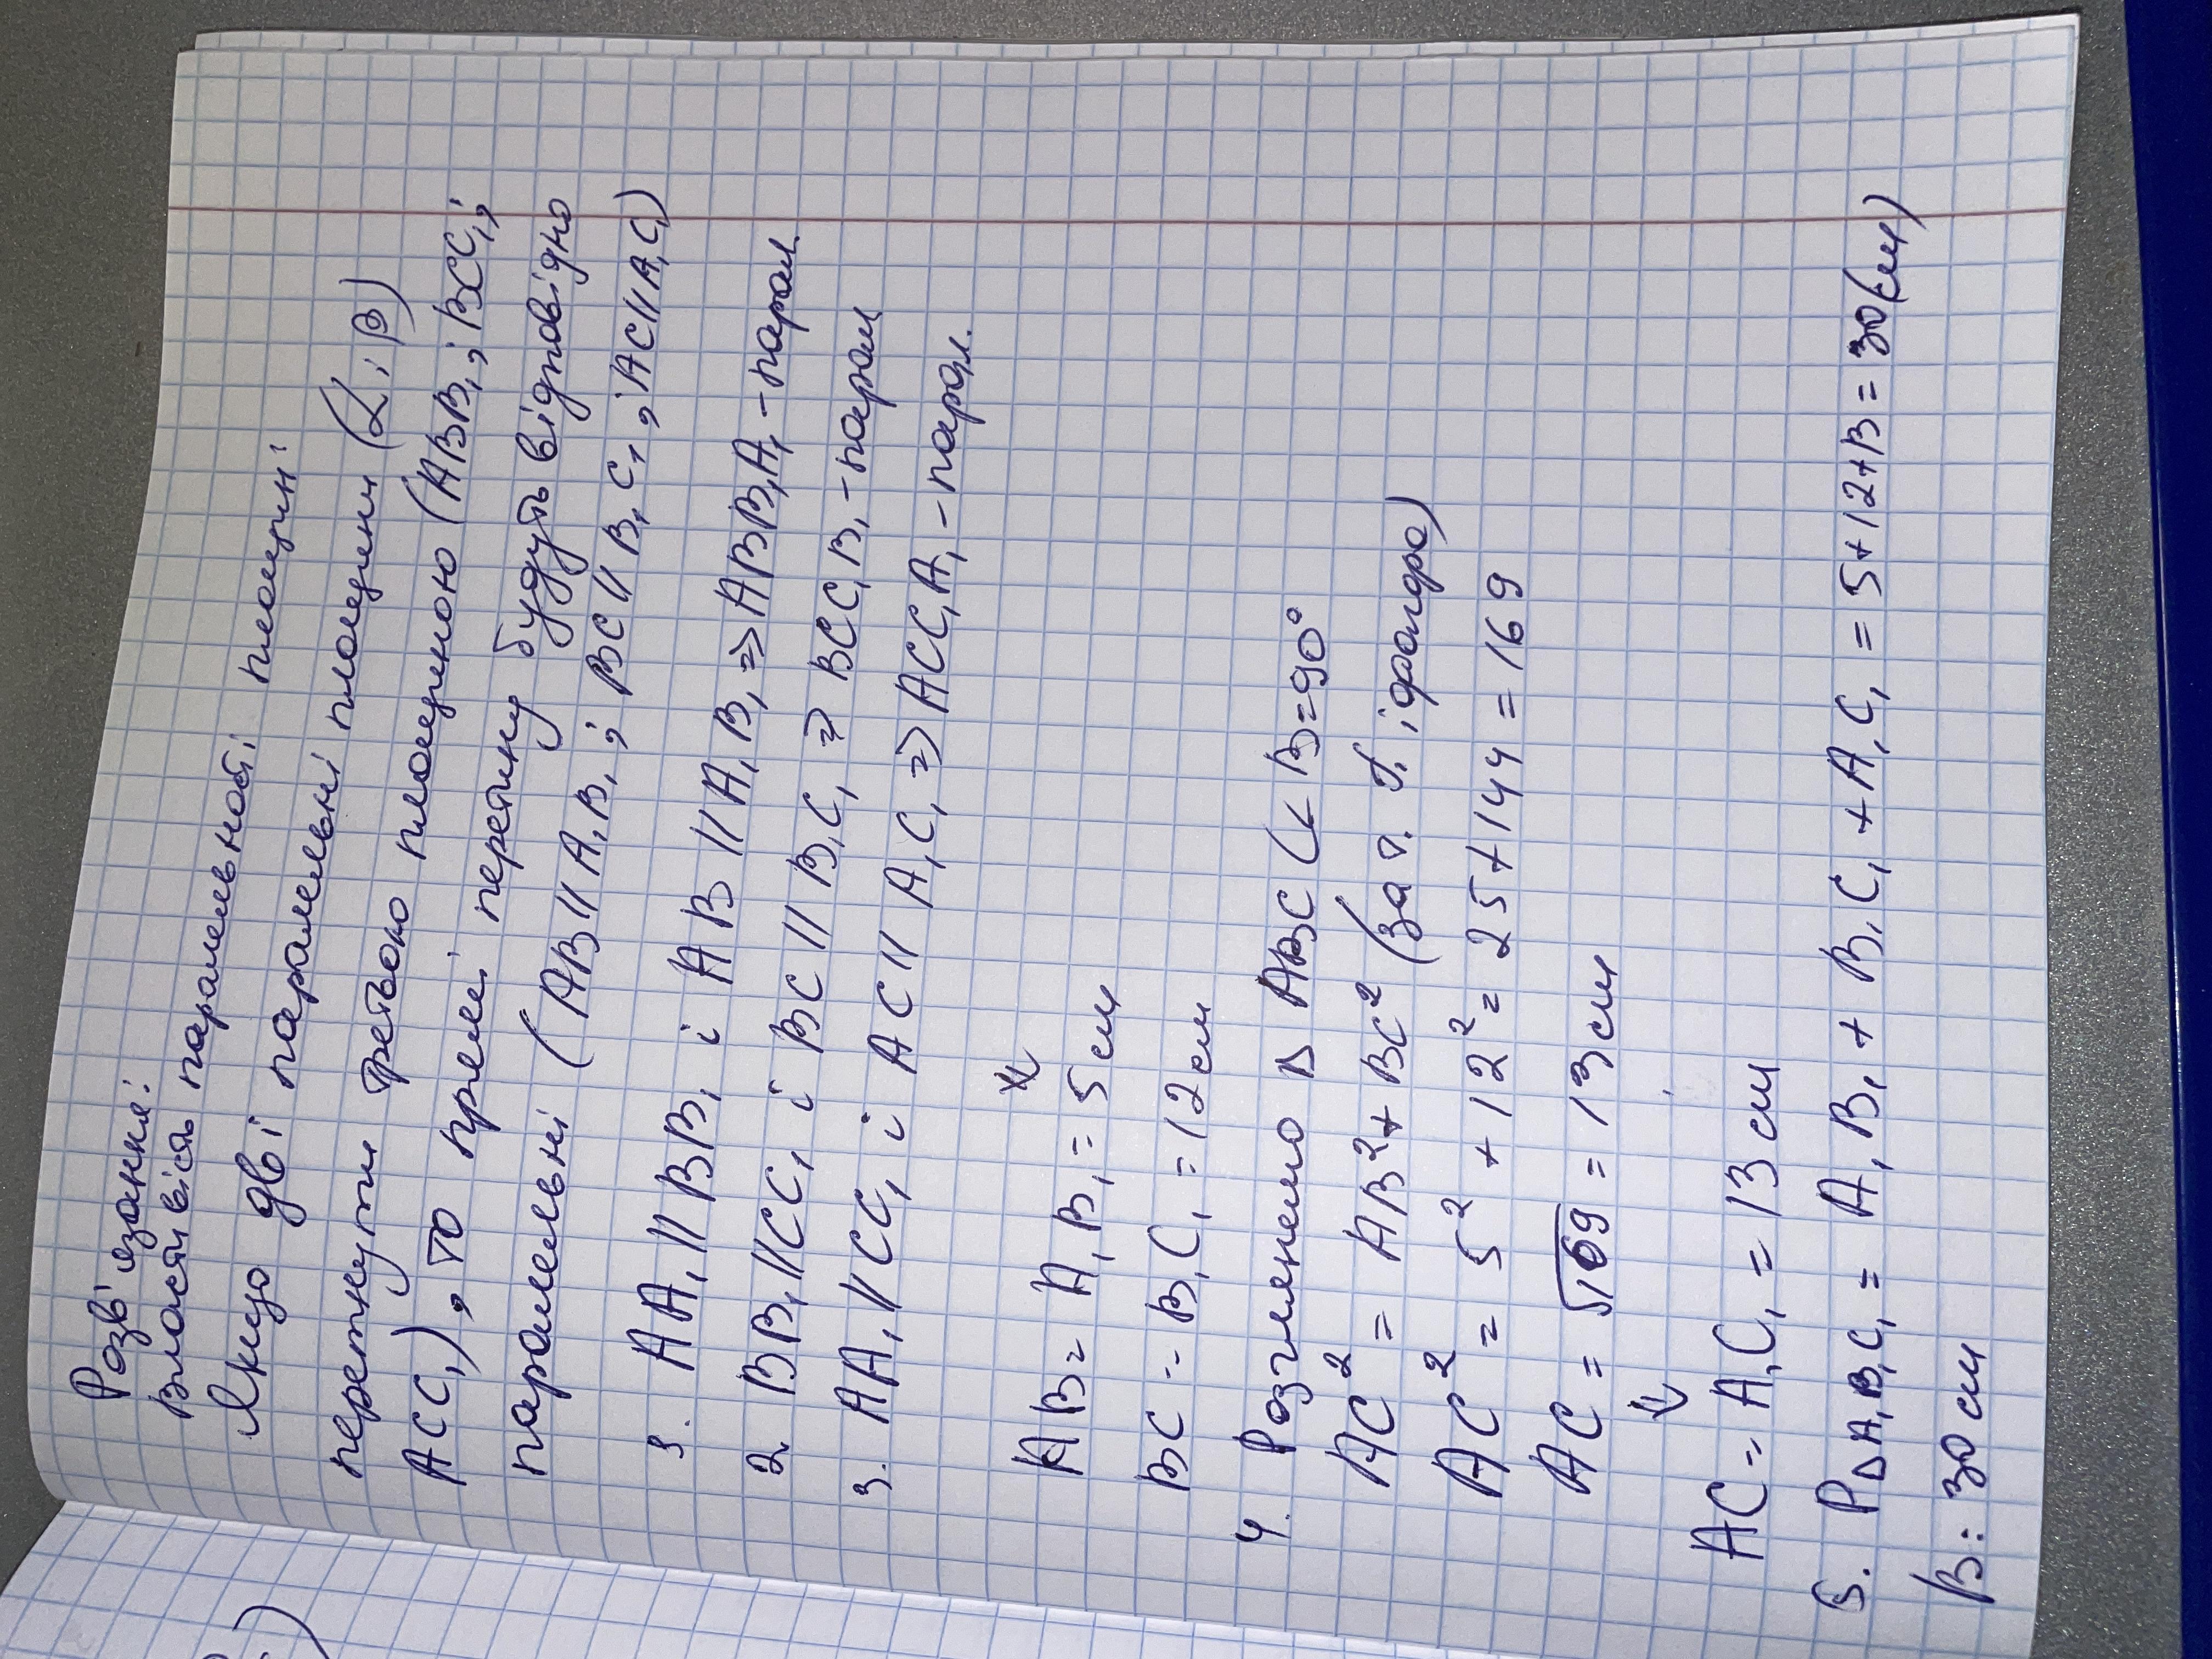 Розв'язання:
Властивість паралельності площин:
Якщо дві паралельні площини (α і β)
перетнути третьою площиною (ABB₁; BCC₁;
ACC₁), то прямі перетину будуть відповідно
паралельні (AB||A₁B₁; BC||B₁C₁; AC||A₁C₁)
1. AA₁||BB₁ і AB||A₁B₁ => ABB₁A₁ - парал.
2. BB₁||CC₁ і BC||B₁C₁ => BCC₁B₁ - парал
3. AA₁||CC₁ і AC||A₁C₁ => ACC₁A₁ - парал.
⇓
AB = A₁B₁ = 5 см
BC = B₁C₁ = 12 см
4. Розглянемо Δ ABC (∠B=90°
AC² = AB² + BC² (за т. Піфагора)
AC² = 5² + 12² = 25 + 144 = 169
AC = √169 = 13 см
⇓
AC = A₁C₁ = 13 см
5. P△A₁B₁C₁ = A₁B₁ + B₁C₁ + A₁C₁ = 5+12+13 = 30 (см)
В: 30 см